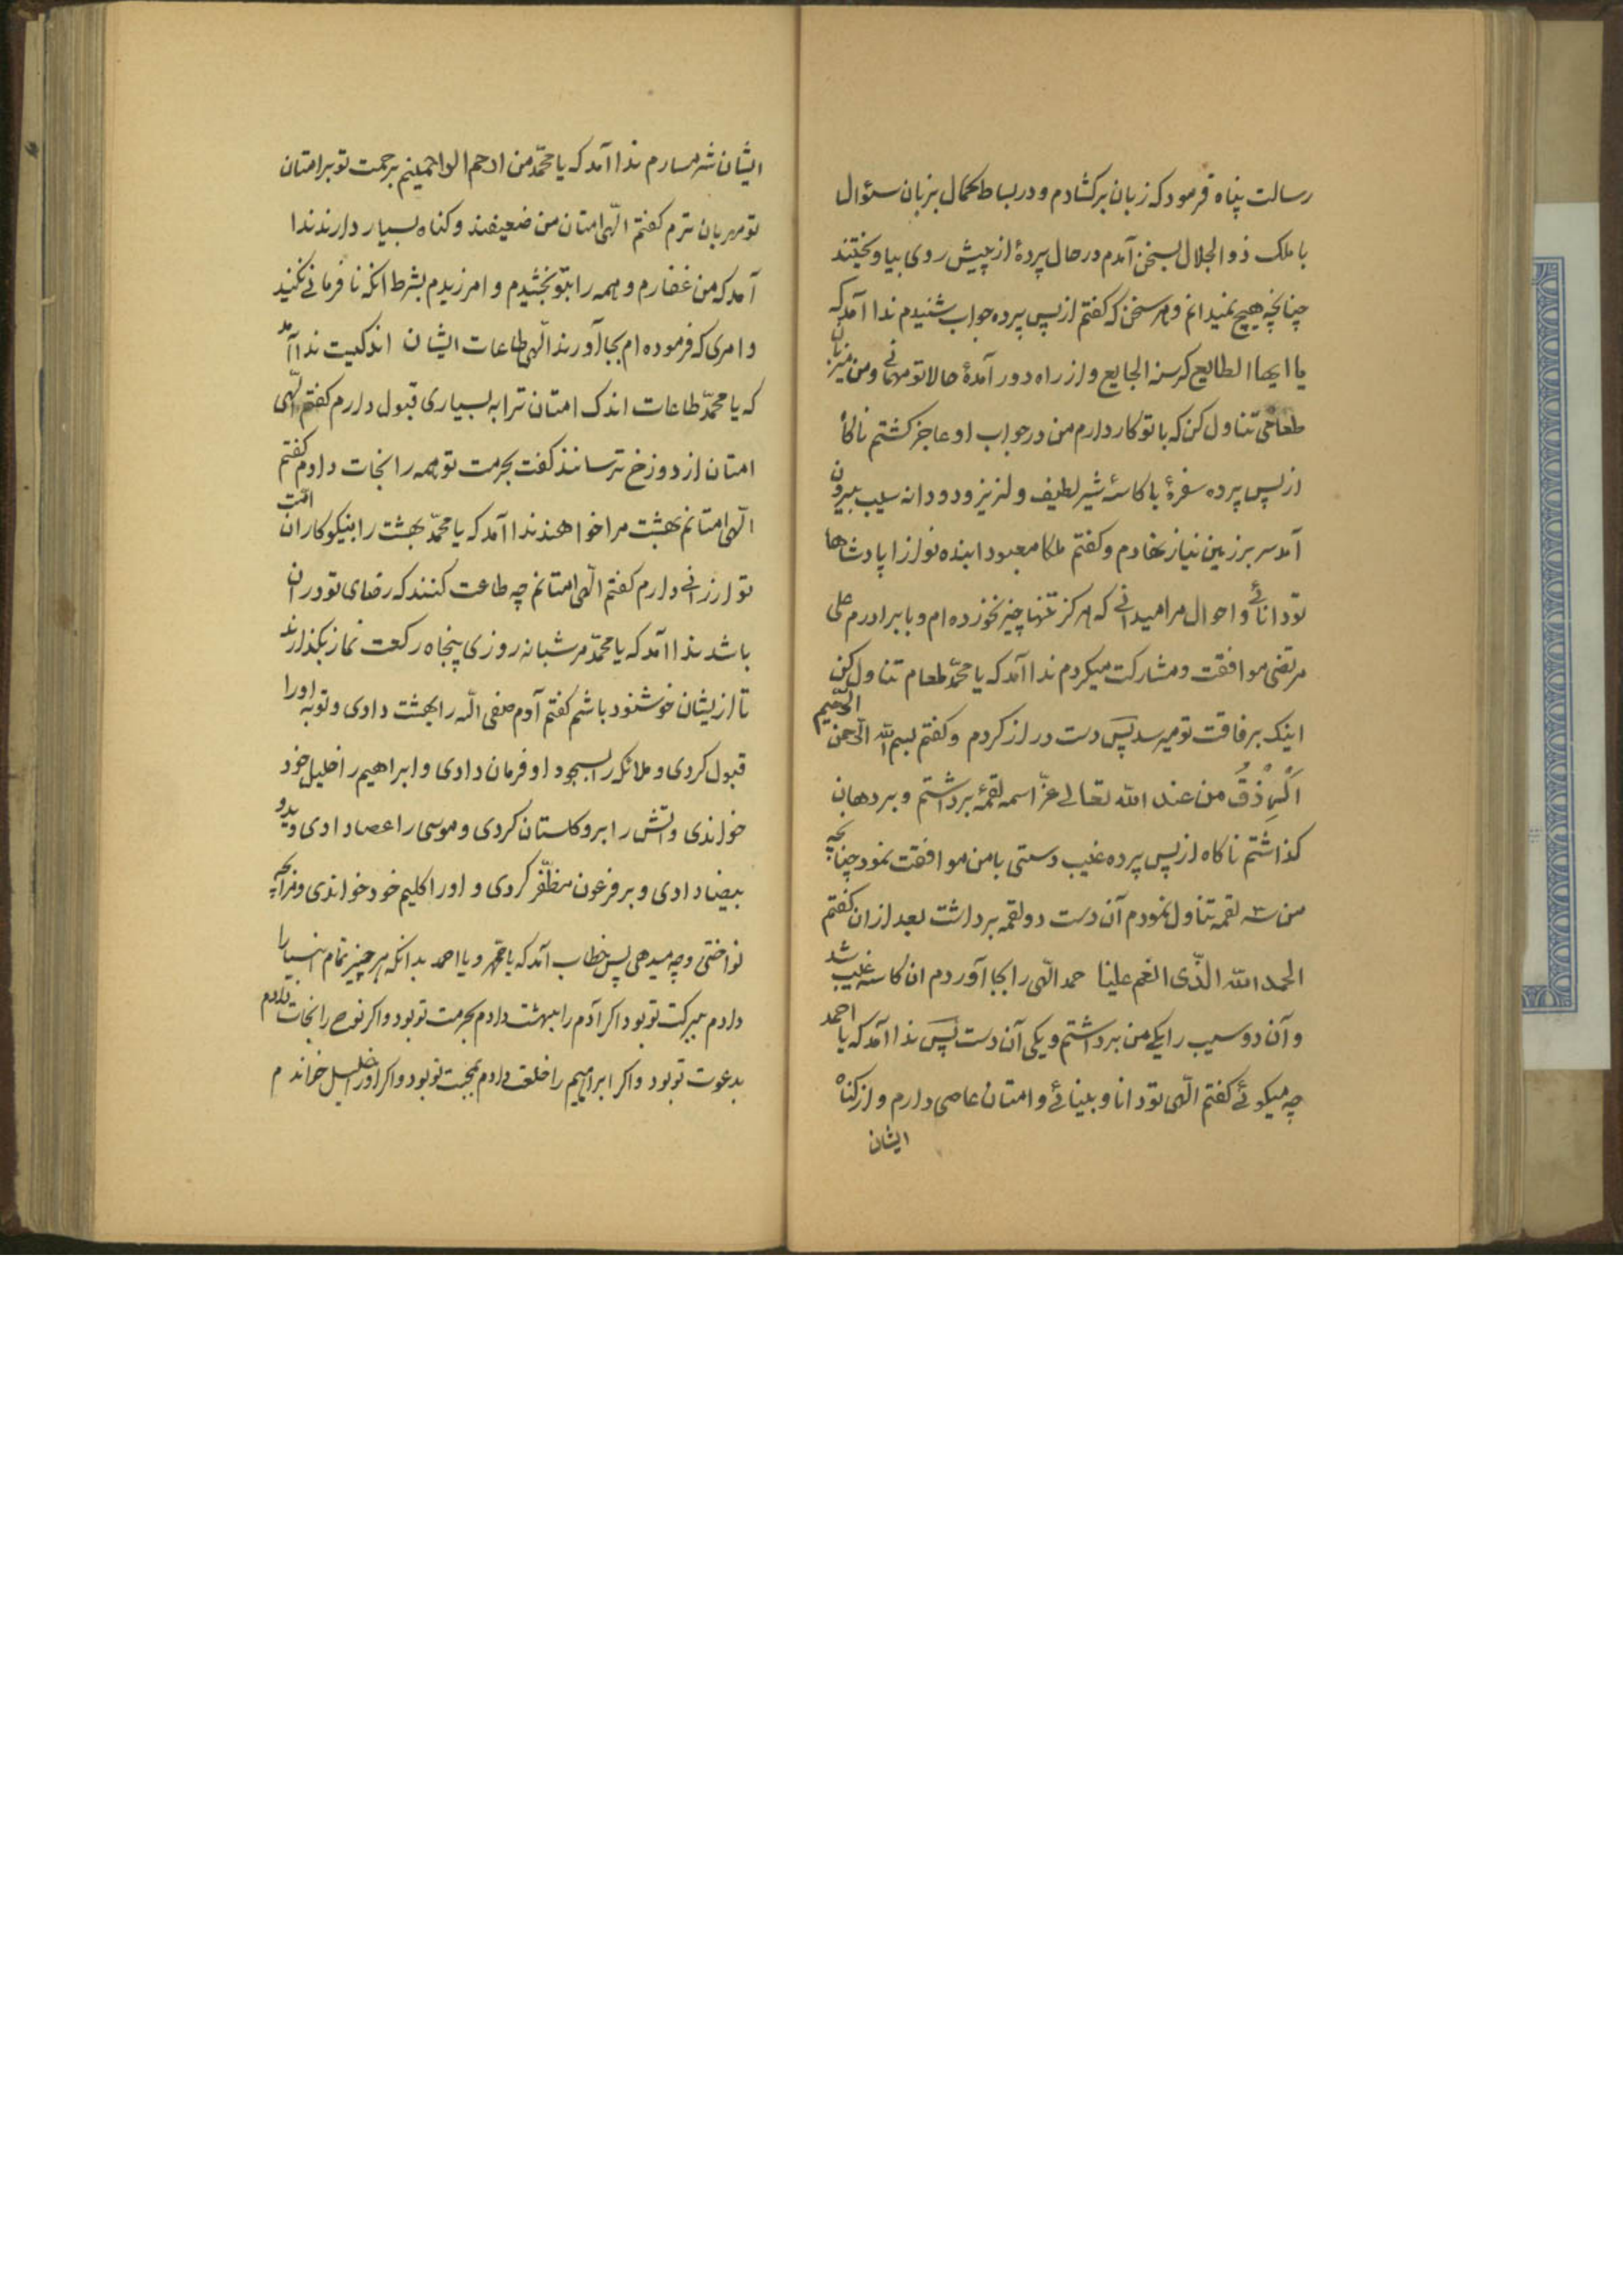 رسالت پناه فرمود که زبان برکشادم و در بساط کمال بزبان سئوال
با ملک ذوالجلال بسخن آمدم در حال پردهٔ از پیش روی بیاویختند
چنانچه هیچ نمیدانم و هر سخن که کفتم از پس پرده جواب شنیدم ندا آمد که
یا ایها الطایع کرسنه الجایع و از راه دور آمدهٔ حالا تو مهمانی و من میزبان
طعامی تناول کن که با تو کار دارم من در جواب او عاجز کشتم ناکاه
از پس پرده سفرهٔ با کاسهٔ شیر لطیف و لذیز و دو دانه سیب بیرون
آمد سر بر زمین نیاز نهادم و کفتم ملکا معبودا بنده نوازا پادشاها
تو دانائی و احوال مرا میدانی که هرکز تنها چیز نخورده ام و با برادرم علی
مرتضی موافقت و مشارکت میکردم ندا آمد که یا محمّد طعام تناول کن
اینک برفاقت تو میرسد پس دست دراز کردم و کفتم بسم الله الرّحمن الرّحیم
من عند الله تعالی عزّ اسمه لقمهٔ برداشتم و بر دهان
کذاشتم ناکاه از پس پرده غیب دستی با من موافقت نمود چنانچه
من سه لقمه تناول نمودم آن دست دو لقمه برداشت بعد از ان کفتم
الحمد الله الّذی انعم علینا حمد الٓهی را بجا آوردم ان کاسه غایب شد
و آن دو سیب را یکی من برداشتم و یکی آن دست پس ندا آمد که یا احمد
چه میکوئی کفتم الٓهی تو دانا و بینائی و امتان عاصی دارم و از کناه
ایشان
ایشان شرمسارم ندا آمد که یا محمّد من ارحم الراحمینم برحمت تو بر امتان
تو مهربان ترم کفتم الٓهی امتان من ضعیفند و کناه بسیار دارند ندا
آمد که من غفارم و همه را بتو بخشیدم و امرزیدم بشرط انکه نافرمانی نکنید
و امری که فرموده ام بجا آورند الٓهی طاعات ایشان اندکیت ندا آمد
که یا محمّد طاعات اندک امتان ترا به بسیاری قبول دارم کفتم الٓهی
امتان از دوزخ ترسانند کفت بحرمت تو همه را نجات دادم کفتم
الٓهی امتانم بهشت مرا خواهند ندا آمد که یا محمّد بهشت را بنیکوکاران امّت
تو ارزانی دارم کفتم الٓهی امتانم چه طاعت کنند که رضای تو در ان
باشد ندا آمد که یا محمّد هر شبانه روزی پنجاه رکعت نماز بکذارند
تا از یشان خوشنود باشم کفتم آدم صفی الله را بهشت دادی و توبه اورا
قبول کردی و ملائک را بسجود او فرمان دادی و ابراهیم را خلیل خود
خواندی و اتش را برو کلستان کردی و موسی را عصا دادی و ید و
بیضا دادی و بر فرعون مظفّر کردی و اورا کلیم خود خواندی و مرا بچه
نواختی و چه میدهی پس خطاب آمد که یا محمّد و یا احمد بدانکه هر چیز تمام انبیا را
دادم ببرکت تو بود اکر آدم را ببهشت دادم بحرمت تو بود و اکر نوح را نجات دادم
بدعوت تو بود و اکر ابراهیم را خلعت دادم بمحبت تو بود و اکر اورا خلیل خواندم